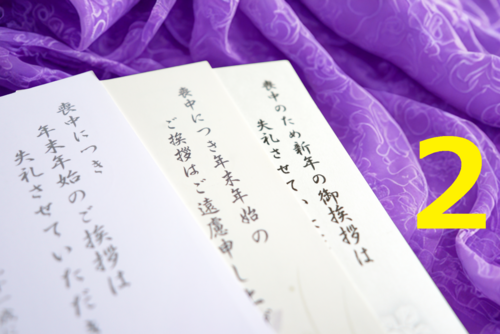 喪中につき
年末年始のご挨拶は
失礼させていただき
喪中につき年末年始の
ご挨拶はご遠慮申し
喪中のため新年の御挨拶は
失礼させてい
2